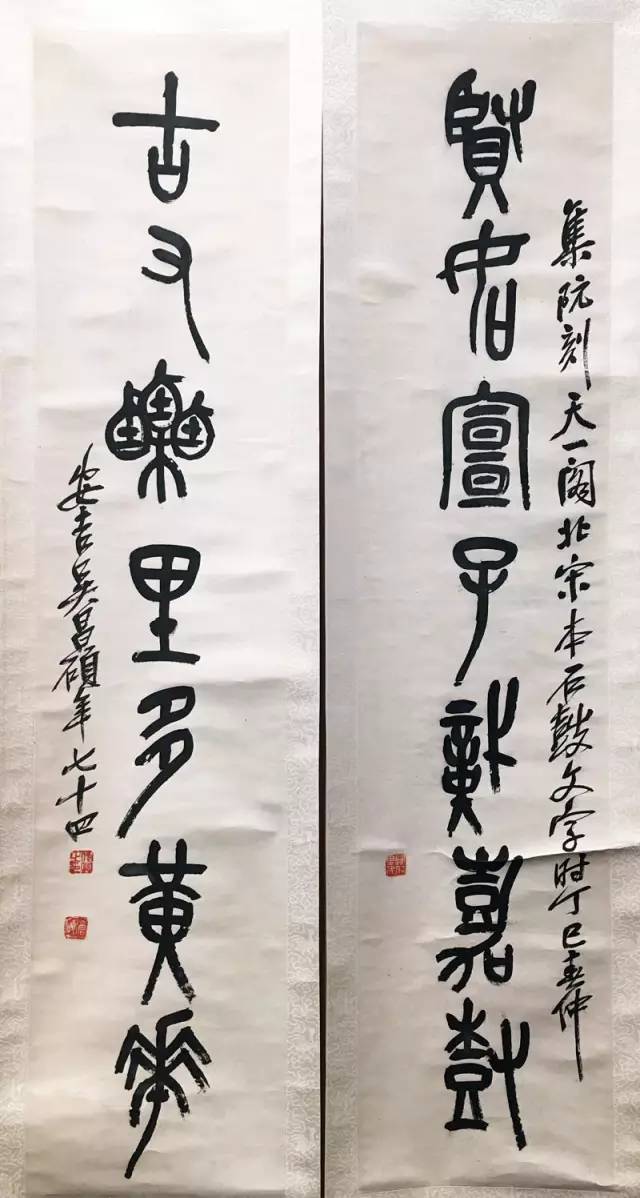 賢君宣子嘉尌
集阮刻天一閣北宋本石鼓文字时丁巳春仲
古又樂里多黃華
安吉吳昌碩年七十四